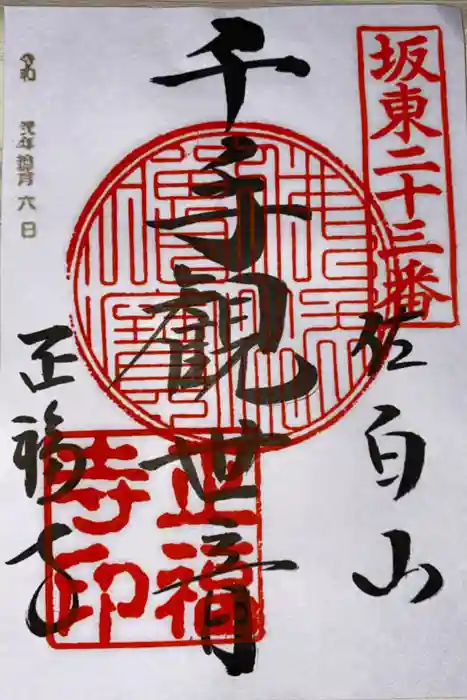 坂東二十三番
佐白山
千手観世音
正福寺
正福
寺印
令和 弐年拾月 六日